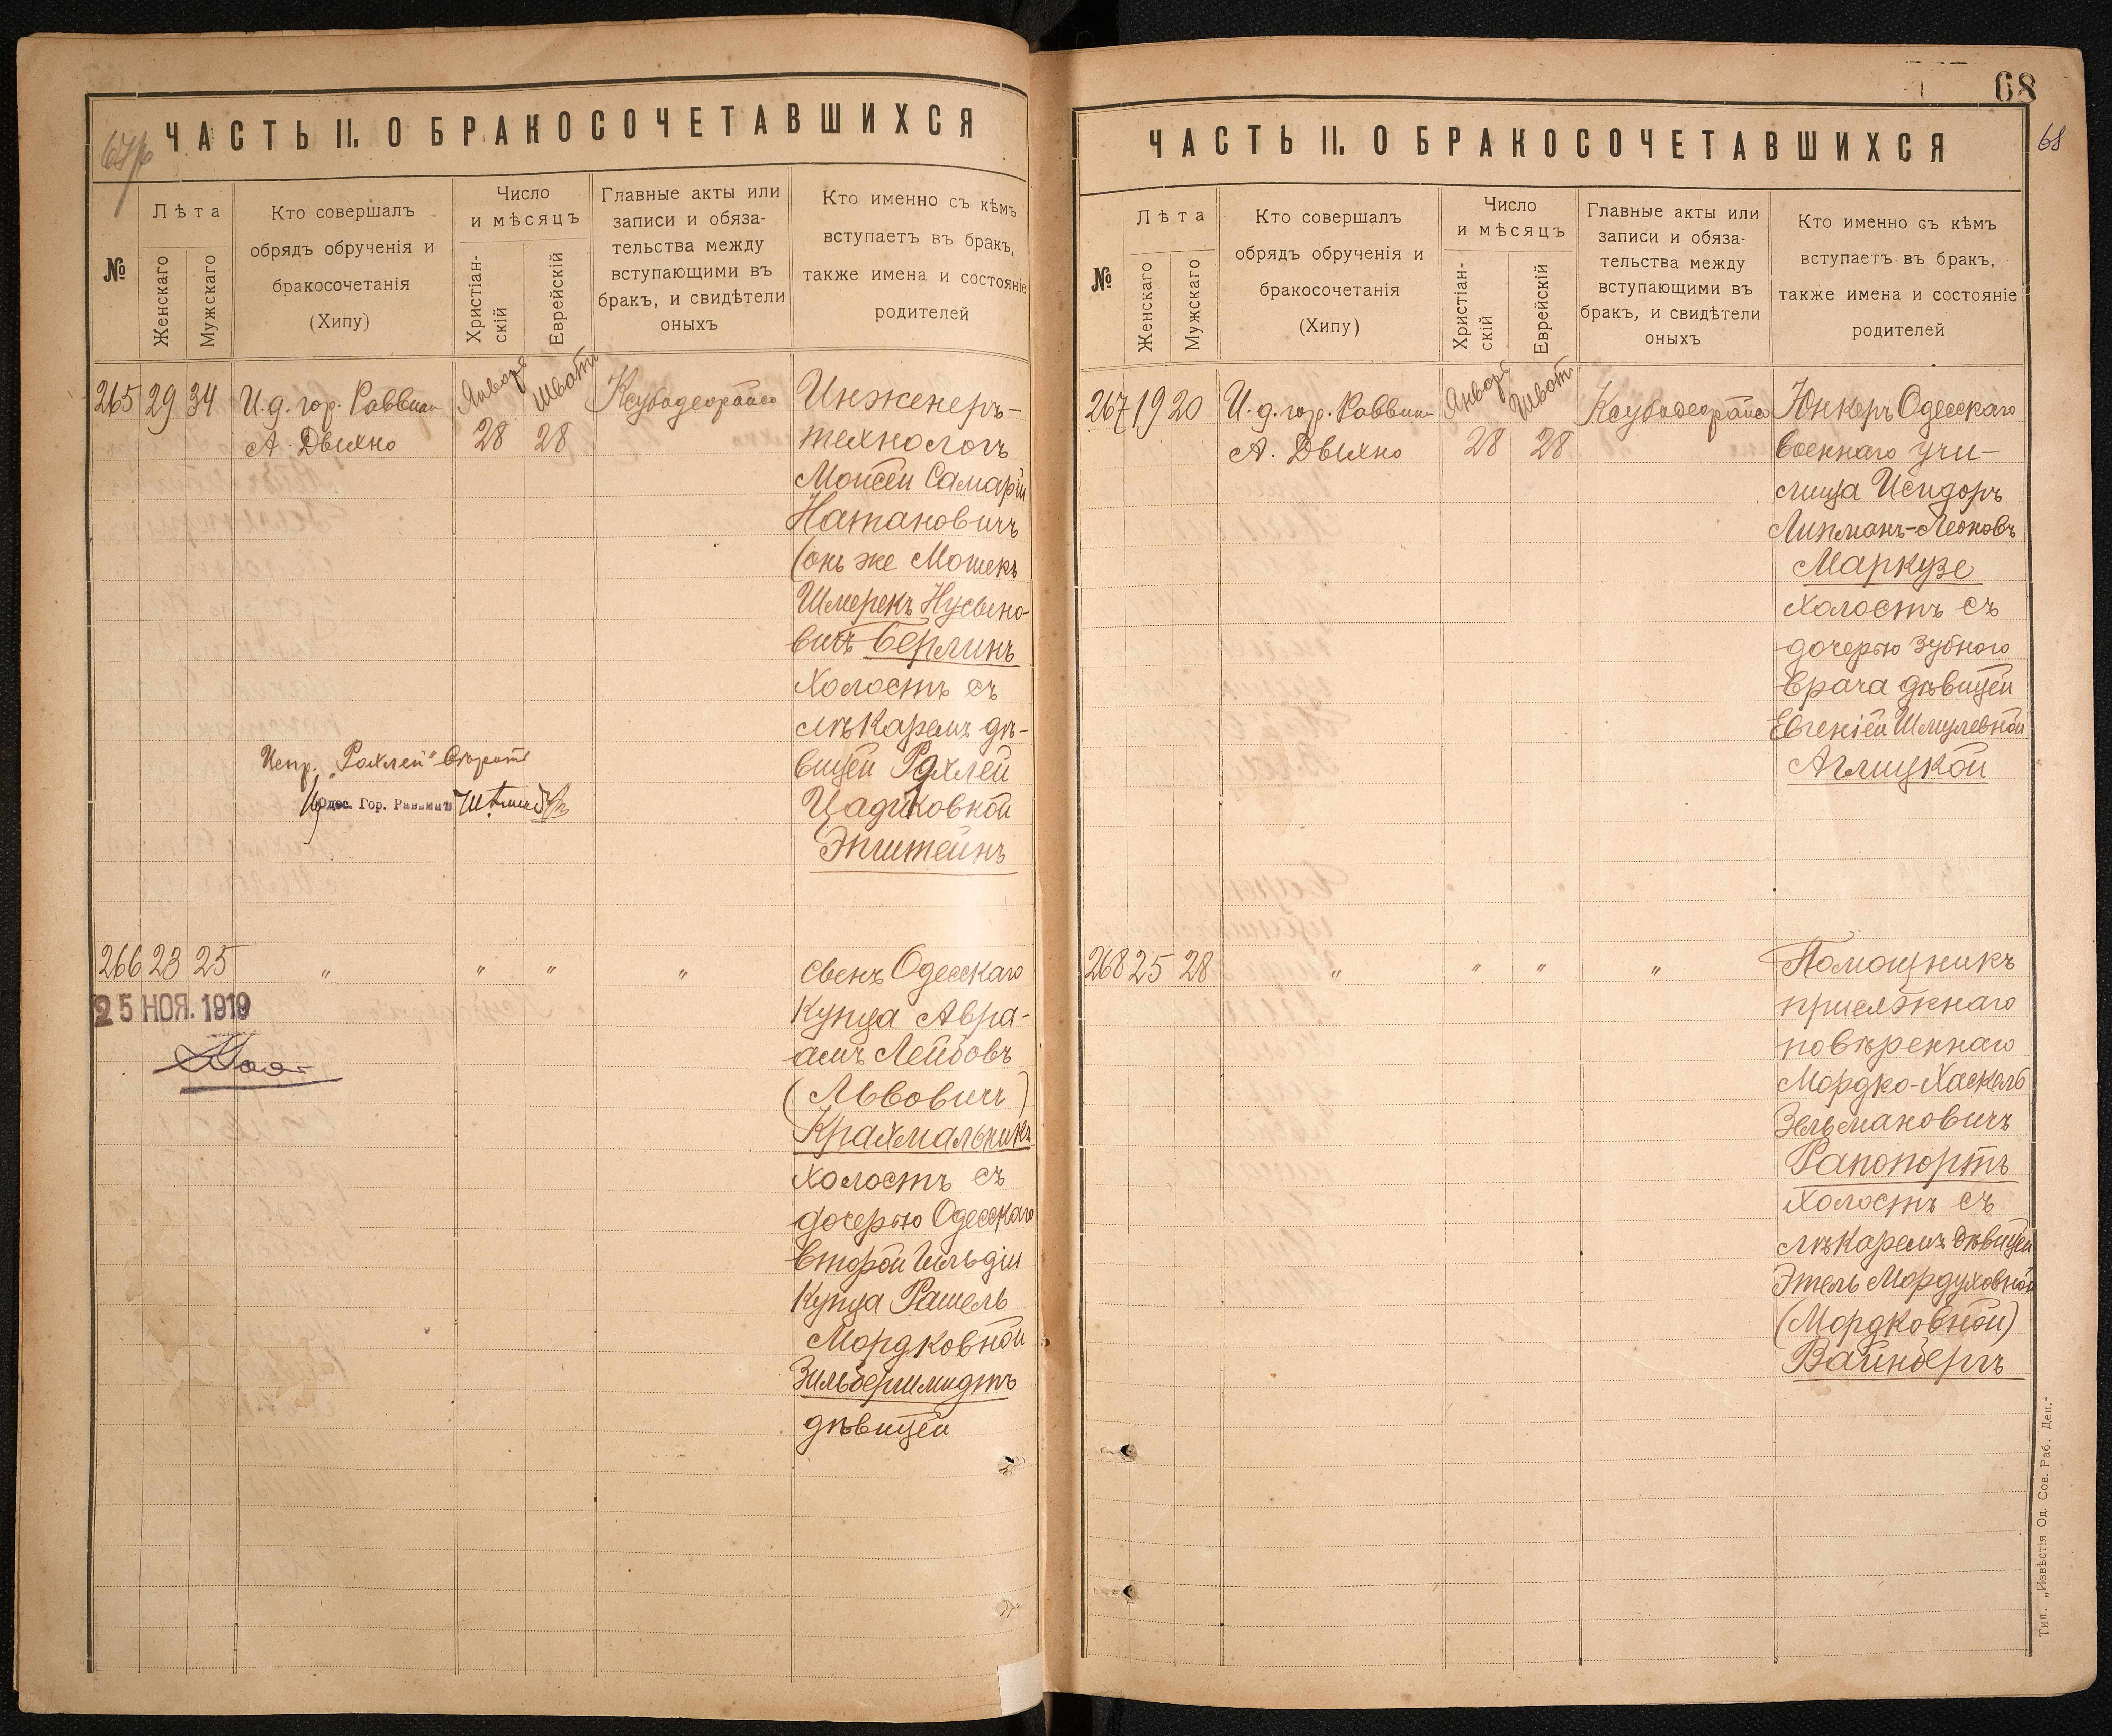 ЧАСТЬ II. О БРАКОСОЧЕТАВШИХСЯ
№
Лѣта
Женскаго
Мужскаго
Кто совершалъ
обрядъ обрученія и
бракосочетанія
(Хипу)
Число
и мѣсяцъ
Христіан-
скій
Еврейскій
Главные акты или
записи и обяза-
тельства между
вступающими въ
бракъ, и свидѣтели
оныхъ
Кто именно съ кѣмъ
вступаетъ въ бракъ,
также имена и состояніе
родителей
265 29 34
И. д. гор. Раввина
А. Двыхно
Январь
28
Шватъ
28
Ксубадеорайсо
Инженеръ-
технологъ
Моисей Самарій
Натановичъ
(онъ же Мошекъ
Шмерекъ Нусыно-
вичъ Берлинъ
холостъ съ
лѣкаремъ дѣ-
вицей Рахлей
Цадиковной
Эпштейнъ
Испр. „Рахлей“
Одес. Гор. Раввинъ
266 23 25
„ „ „ „
25 НОЯ. 1919
Сынъ Одесскаго
купца Авра-
амъ Лейбовъ
(Львовичъ)
Крахмальникъ
холостъ съ
дочерью Одесскаго
второй гильдіи
купца Рашель
Мордковной
Зильбершмидтъ
дѣвицей
68
68
ЧАСТЬ II. О БРАКОСОЧЕТАВШИХСЯ
№
Лѣта
Женскаго
Мужскаго
Кто совершалъ
обрядъ обрученія и
бракосочетанія
(Хипу)
Число
и мѣсяцъ
Христіан-
скій
Еврейскій
Главные акты или
записи и обяза-
тельства между
вступающими въ
бракъ, и свидѣтели
оныхъ
Кто именно съ кѣмъ
вступаетъ въ бракъ,
также имена и состояніе
родителей
267 19 20
И. д. гор. Раввина
А. Двыхно
Январь
28
Шватъ
28
Ксубадеорайсо
Юнкеръ Одесскаго
военнаго учи-
лища Исидоръ
Липманъ-Леоновъ
Маркузе
холостъ съ
дочерью зубного
врача дѣвицей
Евгеніей Шмулевной
Аглицкой
268 25 28
„ „ „ „
Помощникъ
присяжнаго
повѣреннаго
Мордко-Хаскель
Зельмановичъ
Рапопортъ
холостъ съ
лѣкаремъ дѣвицей
Этель Мордуховной
(Мордковной)
Вайнбергъ
Тип. „Извѣстія Од. Сов. Раб. Деп.“